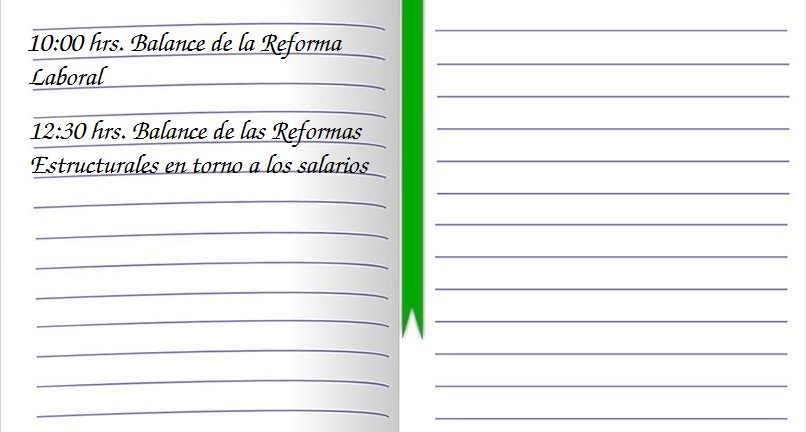 10:00 hrs. Balance de la Reforma
Laboral
12:30 hrs. Balance de las Reformas
Estructurales en torno a los salarios